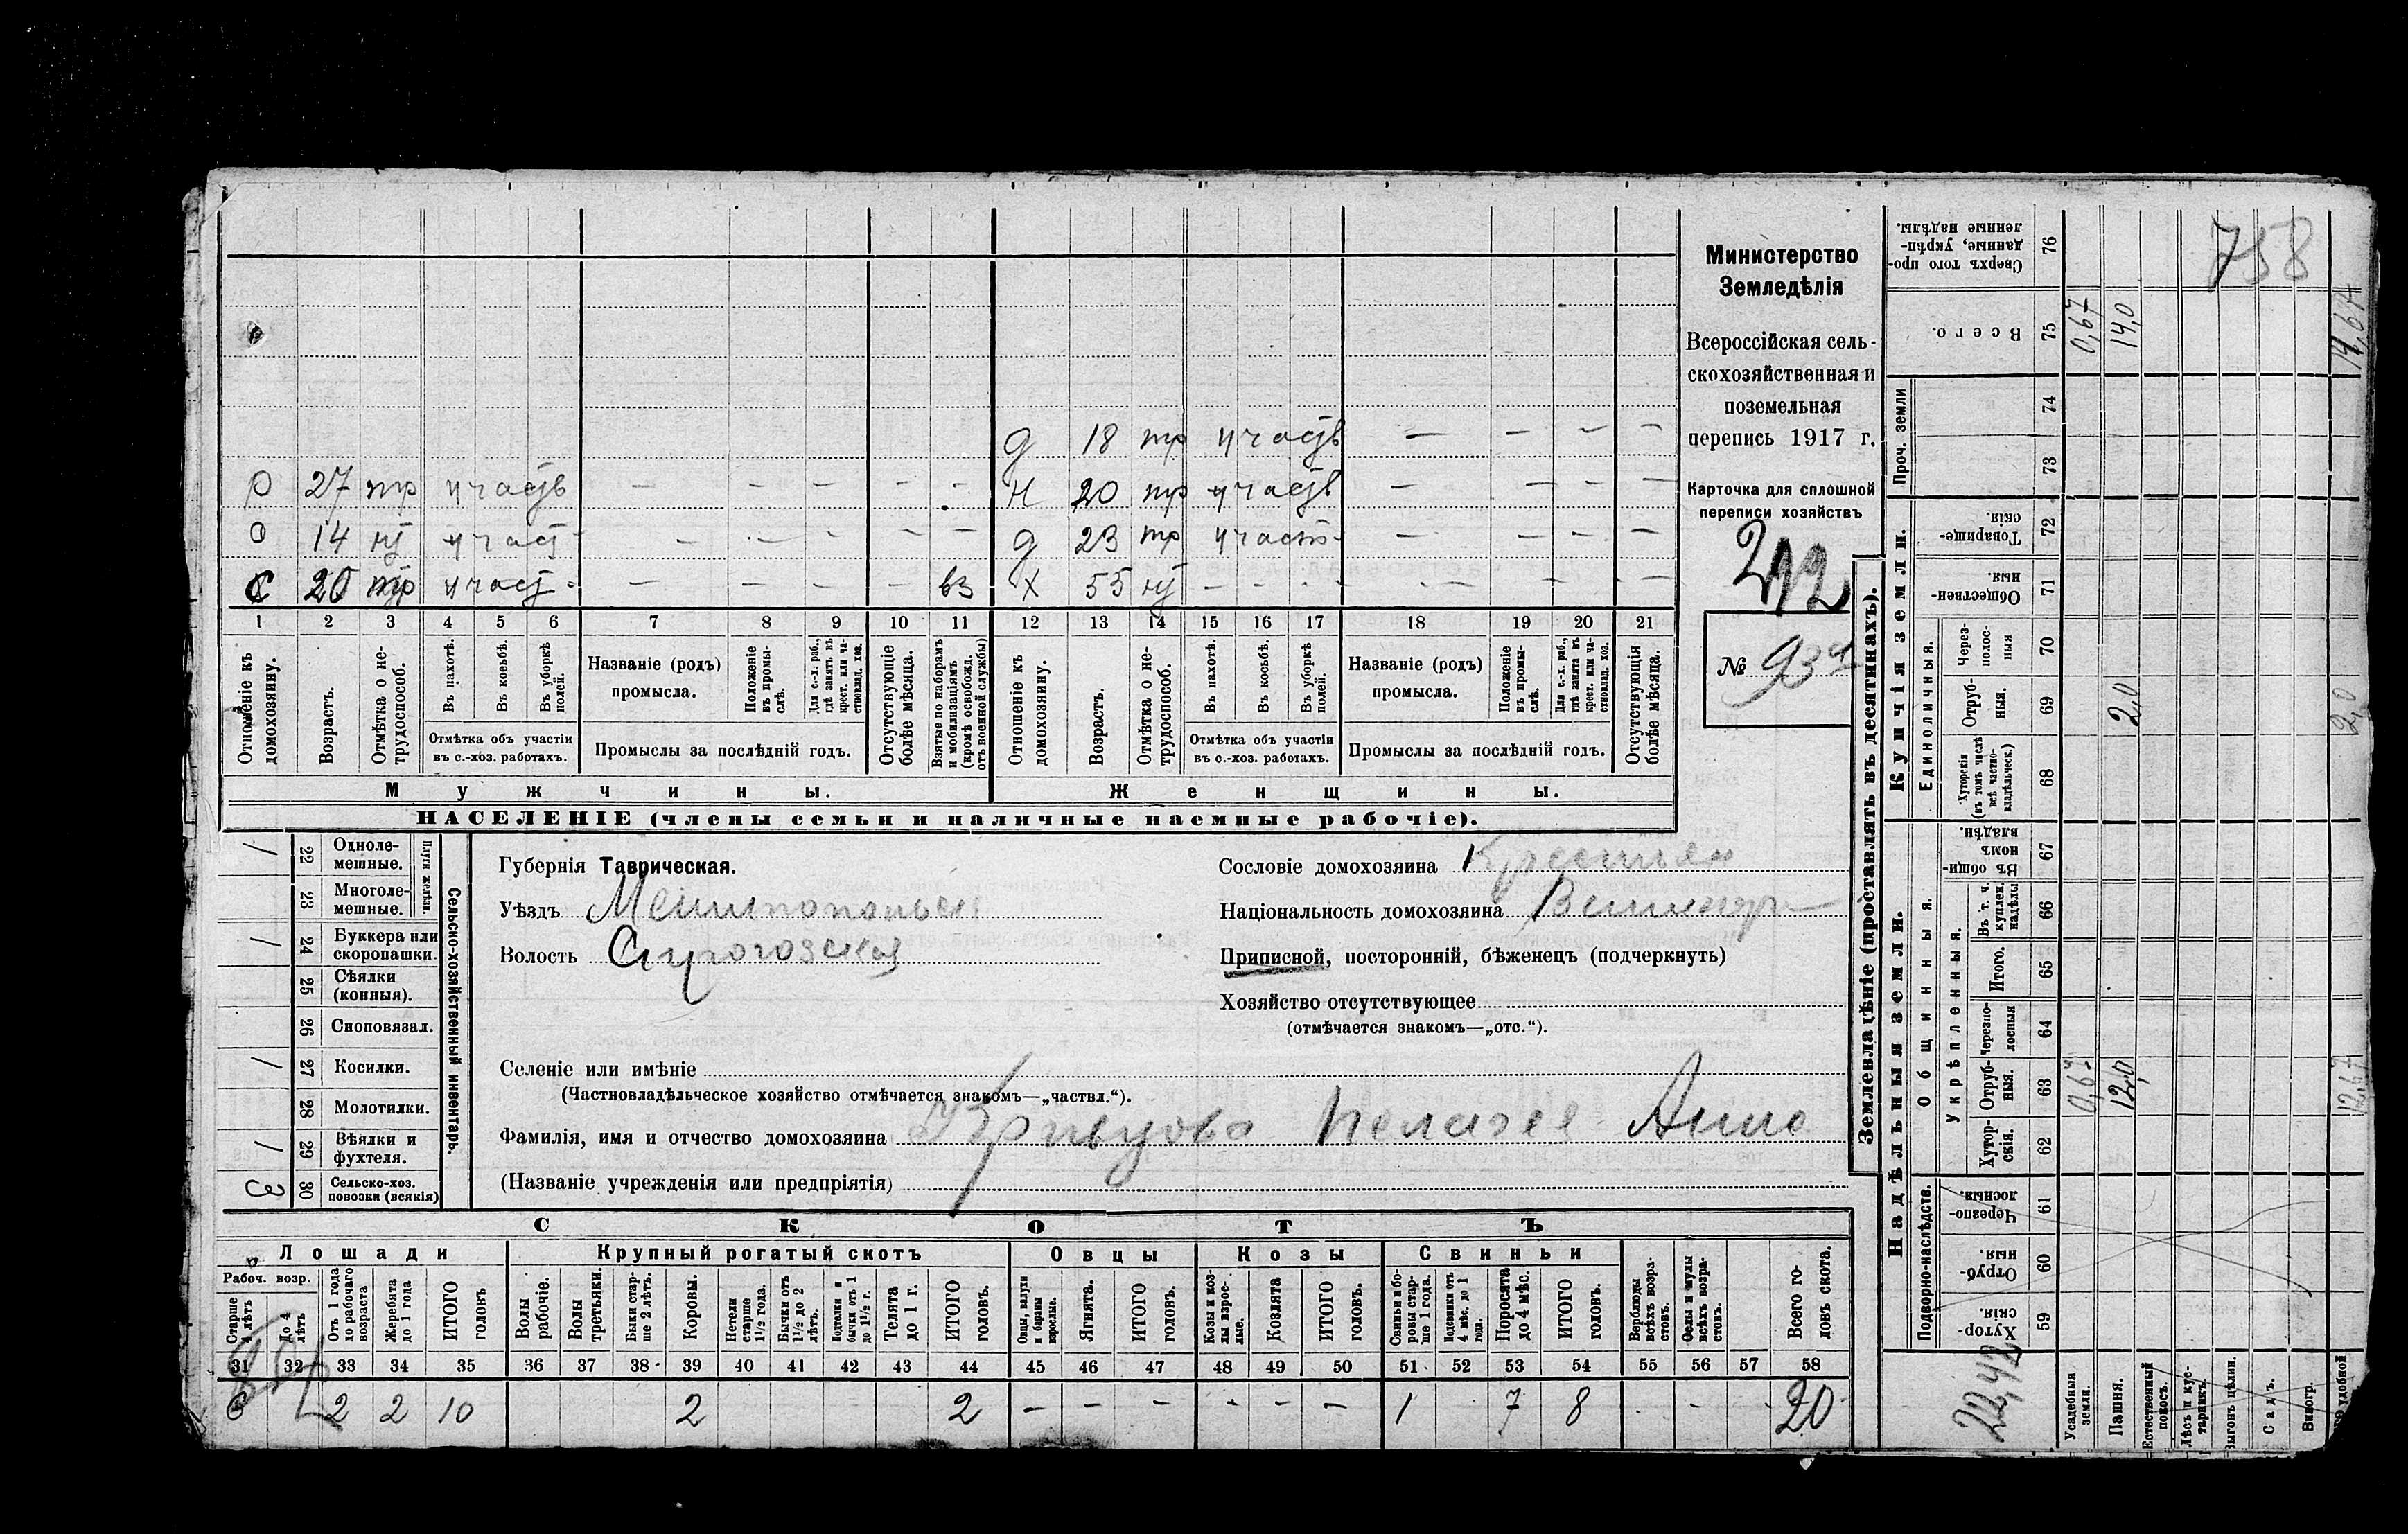 д 18 тр участв — — — —
р 27 тр участв — — — — — н 20 тр участв — — — —
14 участ — — — — — д 23 тр участв — — — —
С 20 тр участ — — — — вз Х 55 — — — —
1 2 3 4 5 6 7 8 9 10 11 12 13 14 15 16 17 18 19 20 21
Отношеніе къ домохозяину.
Возрастъ.
Отмѣтка о нетрудоспособ.
Въ пахотѣ.
Въ косьбѣ.
Въ уборкѣ полей.
Отмѣтка объ участіи
въ с.-хоз. работахъ.
Названіе (родъ)
промысла.
Положеніе въ промыслѣ.
Для с.-х. раб., гдѣ занятъ въ крест. или частновлад. хоз.
Промыслы за послѣдній годъ.
Отсутствующіе болѣе мѣсяца.
Взятые по наборамъ и мобилизаціямъ (кромѣ освобожд. отъ военной службы)
Отношеніе къ домохозяину.
Возрастъ.
Отмѣтка о нетрудоспособ.
Въ пахотѣ.
Въ косьбѣ.
Въ уборкѣ полей.
Отмѣтка объ участіи
въ с.-хоз. работахъ.
Названіе (родъ)
промысла.
Положеніе въ промыслѣ.
Для с.-х. раб., гдѣ занята въ крест. или частновлад. хоз.
Промыслы за послѣдній годъ.
Отсутствующія болѣе мѣсяца.
Мужчины. Женщины.
НАСЕЛЕНІЕ (члены семьи и наличные наемные рабочіе).
Министерство
Земледѣлія
Всероссійская сель-
скохозяйственная и
поземельная
перепись 1917 г.
Карточка для сплошной
переписи хозяйствъ
212
№ 93
1 22 Одноле-
мешные.
23 Многоле-
мешные.
Плуги желѣзн.
1 24 Буккера или
скоропашки.
25 Сѣялки
(конныя).
26 Сноповязал.
1 27 Косилки.
28 Молотилки.
1 29 Вѣялки и
фухтеля.
3 30 Сельско-хоз.
повозки (всякія)
Сельско-хозяйственный инвентарь.
Губернія Таврическая.
Уѣздъ Мелитопольск
Волость Сирогозская
Сословіе домохозяина Крестьян
Національность домохозяина
Приписной, посторонній, бѣженецъ (подчеркнуть)
Хозяйство отсутствующее
(отмѣчается знакомъ—„отс.“).
Селеніе или имѣніе
(Частновладѣльческое хозяйство отмѣчается знакомъ—„частвл.“).
Фамилія, имя и отчество домохозяина Кривцова Пелагея Анно
(Названіе учрежденія или предпріятія)
СКОТЪ
Лошади Крупный рогатый скотъ Овцы Козы Свиньи
Рабоч. возр.
Старше 4 лѣтъ
До 4 лѣтъ
Отъ 1 года до рабочаго возраста
Жеребята до 1 года
ИТОГО головъ
Волы рабочіе.
Волы третьяки.
Быки старше 2 лѣтъ.
Коровы.
Нетели старше 1½ года.
Бычки отъ 1½ до 2 лѣтъ.
Телята до 1 г.
ИТОГО головъ.
Овцы, валухи и бараны взрослые.
Ягнята.
ИТОГО головъ.
Козы и козлы взрослые.
Козлята
ИТОГО головъ.
Свиньи и боровы старше 1 года.
Подсвинки отъ 4 мѣс. до 1 года.
Поросята до 4 мѣс.
ИТОГО головъ.
Верблюды всѣхъ возрастовъ.
Ослы и мулы всѣхъ возрастовъ.
Всего головъ скота.
31 32 33 34 35 36 37 38 39 40 41 42 43 44 45 46 47 48 49 50 51 52 53 54 55 56 57 58
6 2 2 10 2 2 — — — — — — 1 7 8 — — 20
Землевладѣніе (проставлять въ десятинахъ).
Надѣльныя земли. Купчія земли. Проч. земли
Подворно-наслѣдств.
Общинныя.
Укрѣпленныя.
Единоличныя.
Хуторскія 59
Отрубныя. 60
Черезполосныя. 61
Хуторскія. 62
Отрубныя. 63
Черезполосныя 64
Итого. 65
Въ т. ч. куплен. надѣлы 66
Въ общинномъ владѣн. 67
Хуторскія (въ томъ числѣ всѣ частновладѣльческ.) 68
Отрубныя. 69
Черезполосныя 70
Общественныя. 71
Товарищескія. 72
73
74
Всего. 75
Сверхъ того проданные, укрѣпленные надѣлы. 76
Усадебныя земли. 0,67 0,67
Пашня. 12,0 2,0 14,0
Естественный покосъ.
Лѣсъ и кустарникъ.
Выгонъ цѣлин.
Садъ.
Виногр.
удобной 12,67 2,0 14,67
22,42
758